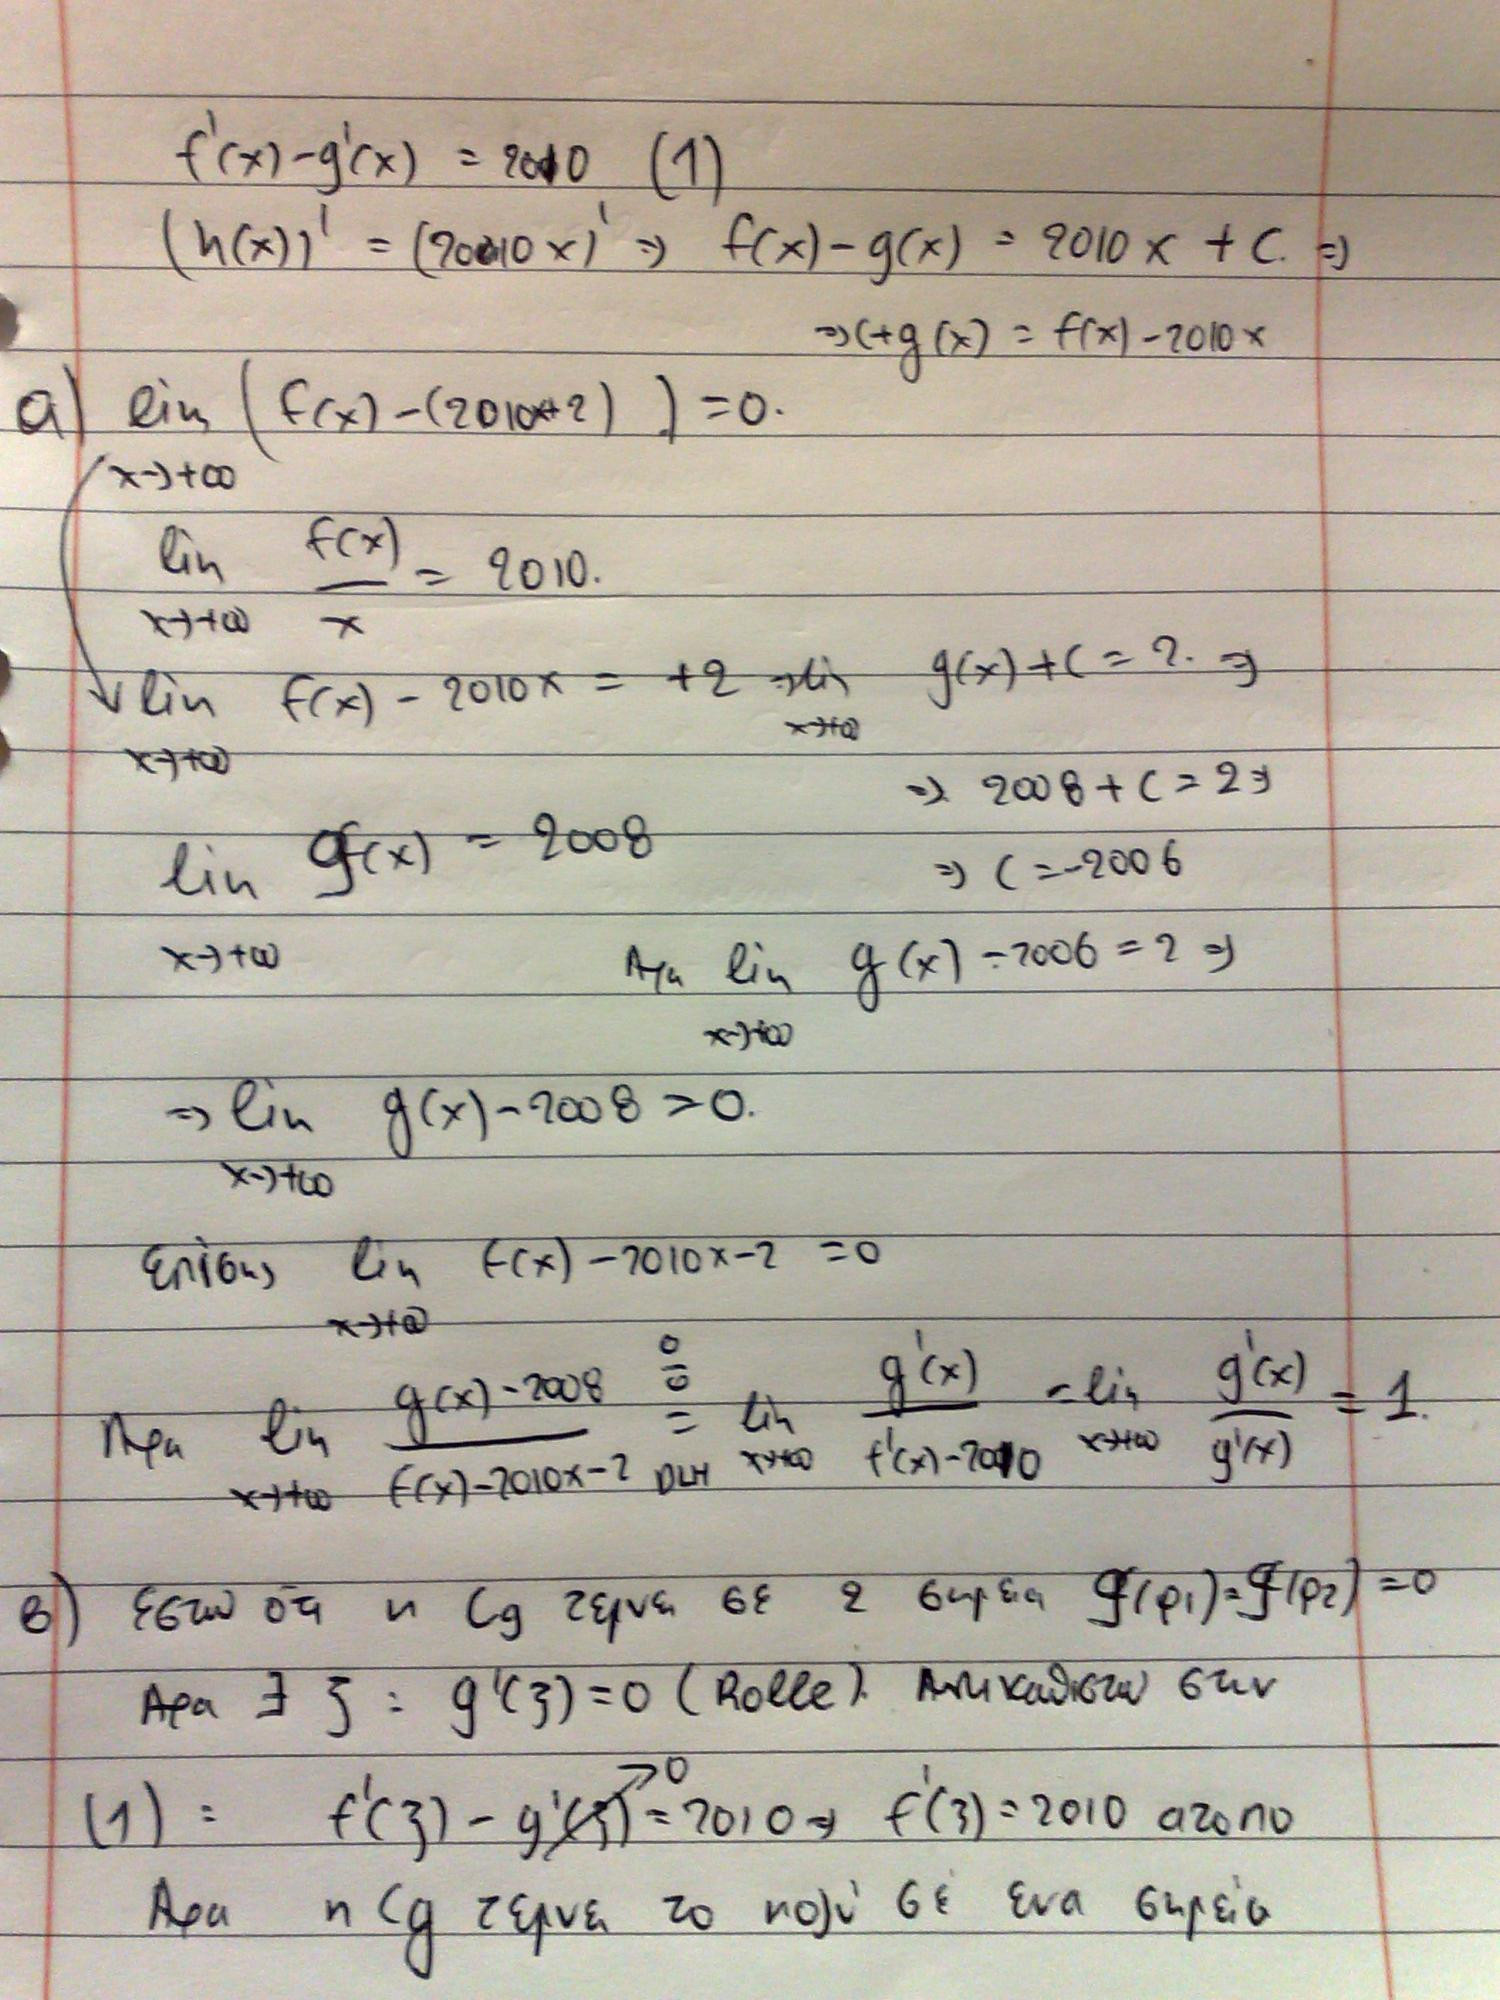 f'(x)-g'(x) = 2010 (1)
(h(x))' = (2010x)' ⇒ f(x)-g(x) = 2010x + C. ⇒
⇒ C+g(x) = f(x)-2010x
α) lim (f(x)-(2010x+2)) = 0.
x→+∞
lim f(x)/x = 2010.
x→+∞
lim f(x)-2010x = +2 ⇒ lim g(x)+C = 2. ⇒
x→+∞ x→+∞
⇒ 2008+C = 2 ⇒
lim g(x) = 2008
x→+∞
⇒ C = -2006
Άρα lim g(x)-2006 = 2 ⇒
x→+∞
⇒ lim g(x)-2008 = 0.
x→+∞
επίσης lim f(x)-2010x-2 = 0
x→+∞
Άρα lim g(x)-2008/f(x)-2010x-2 0/0 = DLH lim g'(x)/f'(x)-2010 = lim g'(x)/g'(x) = 1.
x→+∞ x→+∞ x→+∞
β) έστω ότι η Cg τέμνει σε 2 σημεία g(ρ1)=g(ρ2)=0
Άρα ∃ ξ : g'(ξ)=0 (Rolle). Αντικαθιστώ στην
(1) : f'(ξ) - g'(ξ) →0 = 2010 ⇒ f'(ξ) = 2010 ατοπο
Άρα η Cg τέμνει το πολύ σε ενα σημείο